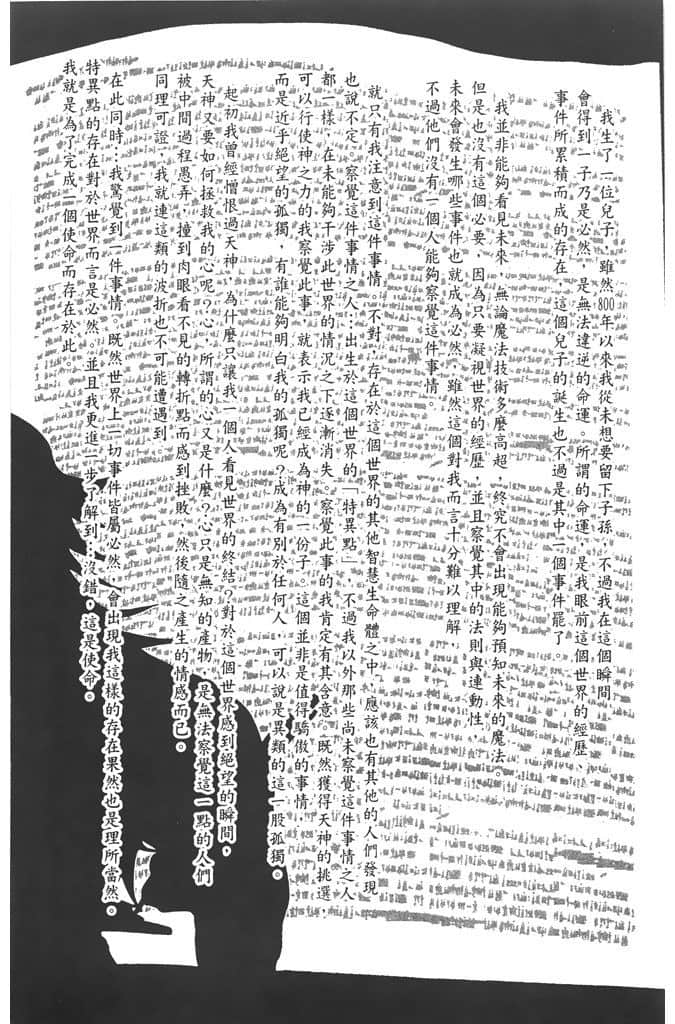 我生了一位兒子，雖然800年以來我從未想要留下子孫，不過我在這個瞬間，
會得到一子乃是必然，是無法違逆的命運。所謂的命運，是我眼前這個世界的經歷、
事件所累積而成的存在，這個兒子的誕生也不過是其中一個事件罷了。
我並非能夠看見未來，無論魔法技術多麼高超，終究不會出現能夠預知未來的魔法。
但是也沒有這個必要，因為只要凝視世界的經歷，並且察覺其中的法則與連動性，
未來會發生哪些事件也就成為必然，雖然這個對我而言十分難以理解，
不過他們沒有一個人能夠察覺這件事情。
就只有我注意到這件事情。不對，存在於這個世界的其他智慧生命體之中，應該也有其他的人們發現
也說不定。察覺這件事情之人，出生於這個世界的「特異點」，不過我以外那些尚未察覺這件事情之人，
都一樣，在未能夠干涉此世界的情況之下逐漸消失。察覺此事的我肯定有其含意。既然獲得天神的挑選，
可以行使神之力的我察覺此事，就表示我已經成為神的一份子。這個並非是值得驕傲的事情，
而是近乎絕望的孤獨，有誰能夠明白我的孤獨呢？成為有別於任何人，可以說是異類的這一股孤獨。
起初我曾經憎恨過天神，為什麼只讓我一個人看見世界的終結？對於這個世界感到絕望的瞬間，
天神又要如何拯救我的心呢？心，所謂的心又是什麼？心只是無知的產物，是無法察覺這一點的人們
被中間過程愚弄，撞到肉眼看不見的轉折點而感到挫敗，然後隨之產生的情感而已。
同理可證，我就連這類的波折也不可能遭遇到。
在此同時，我驚覺到一件事情。既然世界上一切事件皆屬必然，會出現我這樣的存在果然也是理所當然。
特異點的存在對於世界而言是必然。並且我更進一步了解到…沒錯，這是使命。
我就是為了完成一個使命而存在於此。